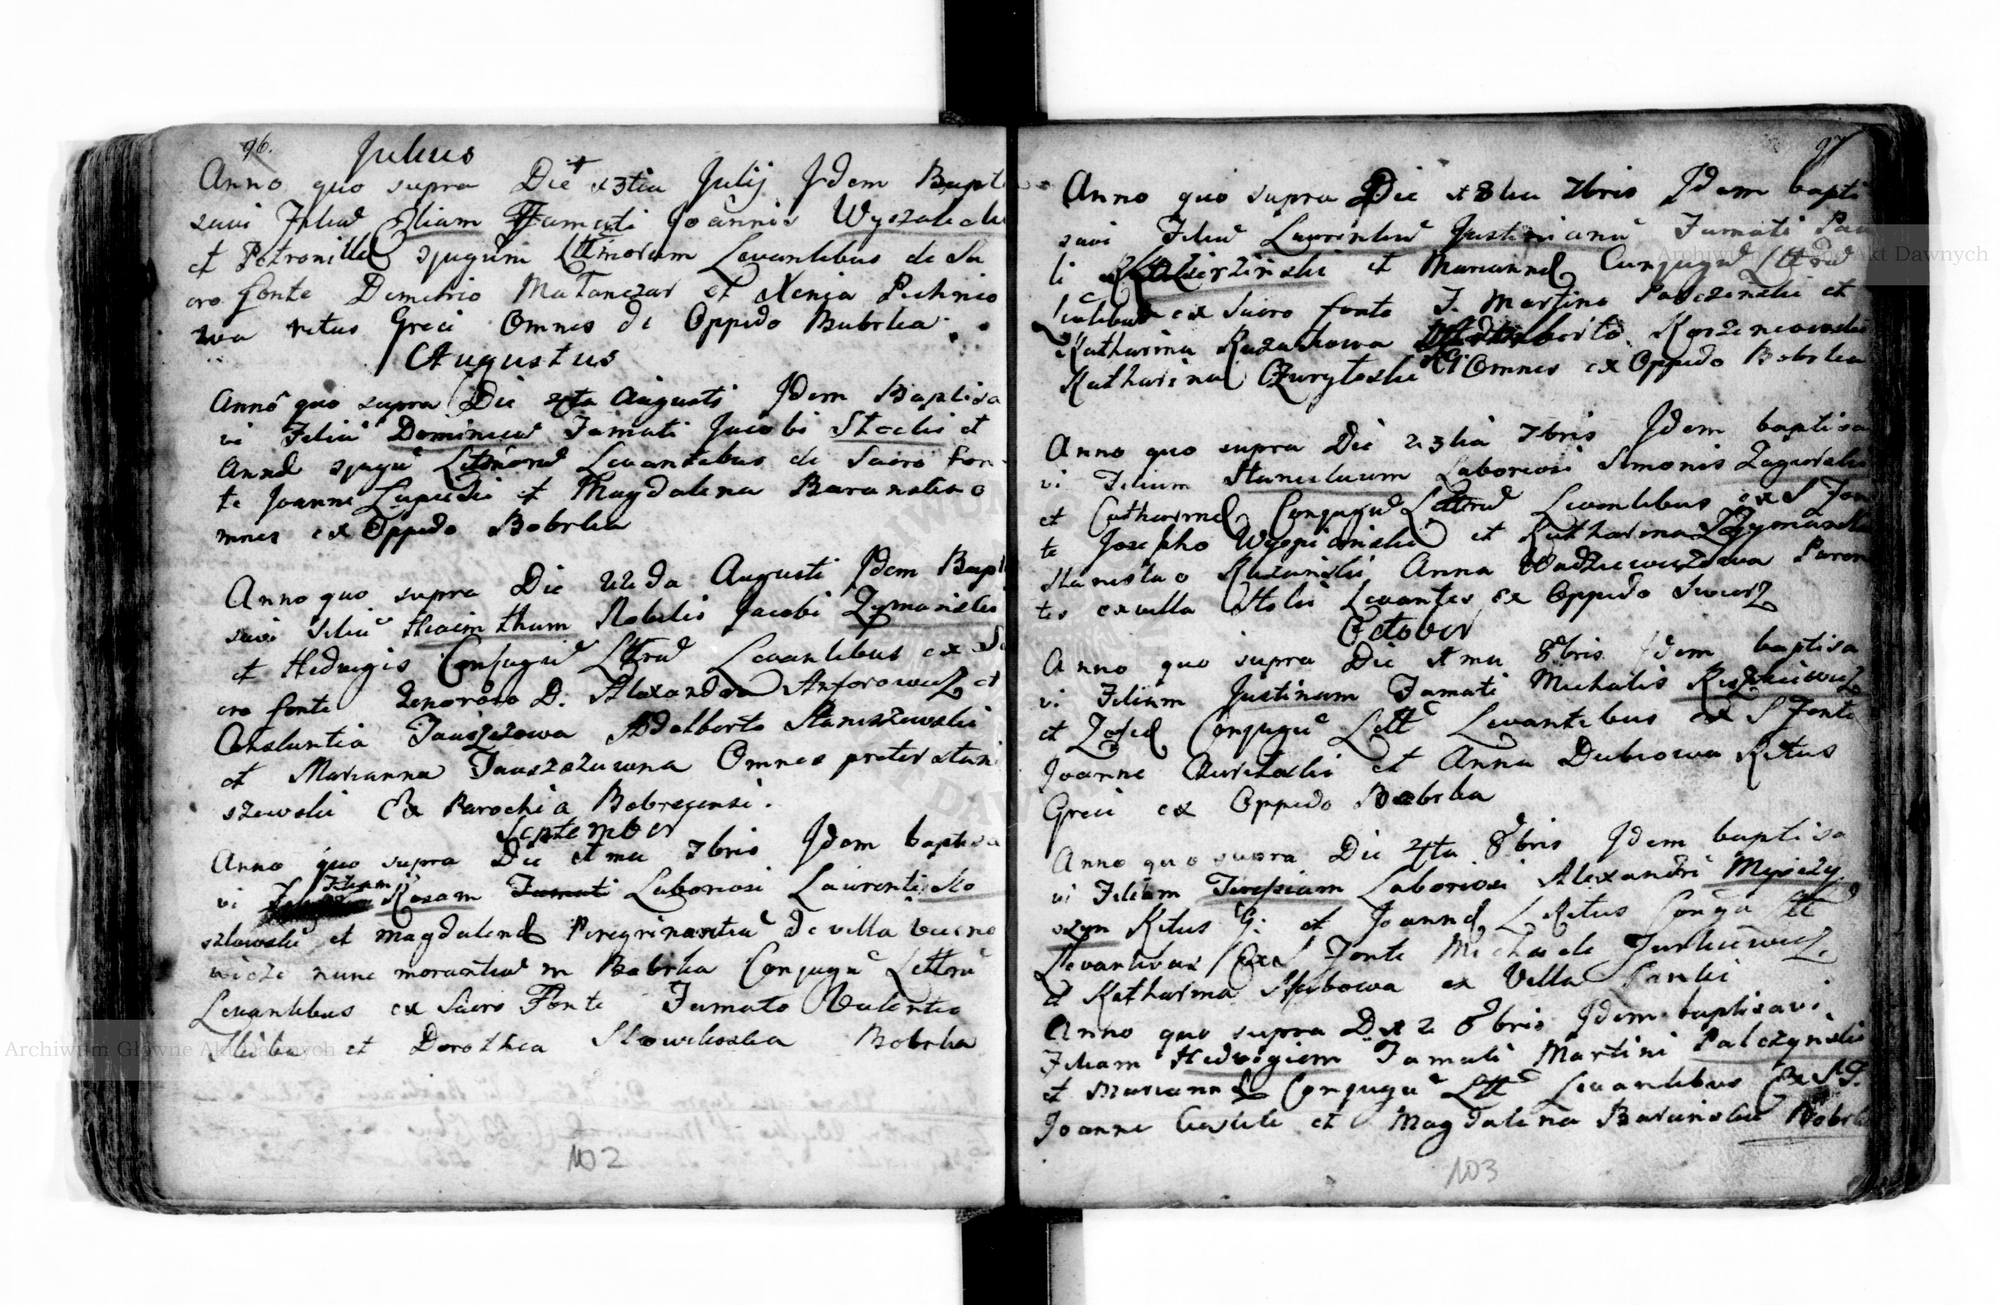 96.
Julius
Anno quo supra Die 23tia Julij Idem Bapti
savi Filiū Eliam Famati Joannis Wyszaticki
et Petronillæ Ɔjugum Lttimorum Levantibus de Sa
cro fonte Demetrio Matanczar et Xenia Pichnio
wa ritus Greci Omnes de Oppido Bubrka
Augustus
Anno quo supra Die 4ta Augusti Idem Baptisa
vi Filiū Dominicū Famati Jacobi Stecki et
Annæ Ɔjugū Lttimorū Levantibus de Sacro fon
te Joanne Lupicki et Magdalena Baranska o
mnes ex Oppido Bobrka
Anno quo supra Die 22da Augusti Idem Bapti
savi Filiū Hiacinthum Nobilis Jacobi Zymanski
et Hedvigis Conjugū Lttrū Levantibus ex Sa
cro fonte Generoso D. Alexandro Antorowicz et
Constantia Tauszszowa Adalberto Staniszewski
et Marianna Tauszszuwna Omnes preter Stani
szewski Ex Parochia Bobrecensi.
September
Anno quo supra Die 1ma 7bris Idem baptisa
vi Filiam Rosam Famati Laboriosi Laurentij Ko
szlowski et Magdalenæ Peregrinantiū de villa
nunc morantiū in Bobrka Conjugū Lttimū
Levantibus ex Sacro Fonte Famato Valentio
Skiba et Dorothea Slowikoska Bobrka
102
97
Anno quo supra Die 18va 7bris Idem bapti
savi Filiū Laurentiū Justinianū Famati Pau
li et Mariannæ Conjugū Lttrū
Levantibus ex Sacro fonte F. Martino Palczinski et
Katharina Kuzakowa Adalberto Korzeniowski
Katharina Czurytoski Omnes ex Oppido Bobrka
Anno quo supra Die 23tia 7bris Idem baptisa
vi Filium Stanislaum Laboriosi Simonis Zagurski
et Catharinæ Conjugū Lttrū Levantibus ex S Fon
te Josepho Wyspianski et Katharina Zymanska
Stanislao Kuzanski Anna Wadziewiczowa Paren
tes ex villa Levantes ex Oppido Swirz
October
Anno quo supra Die 1ma 8bris Idem baptisa
vi Filium Justinum Famati Michalis Ruszkiewicz
et Zofiæ Conjugū Ltt Levantibus ex S Fonte
Joanne Curitoski et Anna Dubiowa Ritus
Greci ex Oppido Bobrka
Anno quo supra Die 4ta 8bris Idem baptisa
vi Filiam Teresiam Laboriosi Alexandri Mysczy
szyn Ritus G. et Joannæ L Ritus Conju Ltt
Levantibus Ex S Fonte Michaele Junkiewicz
et Katharina Skibowa ex Villa Lanki
Anno quo supra D. 12 8bris Idem baptisavi
Filiam Hedvigiem Famati Martini Palczynski
et Mariannæ Conjugū Ltt Levantibus Ex S. F.
Joanne et Magdalena Baranska Bobrka
103
Archiwum Główne Akt Dawnych
Archiwum Główne Akt Dawnych